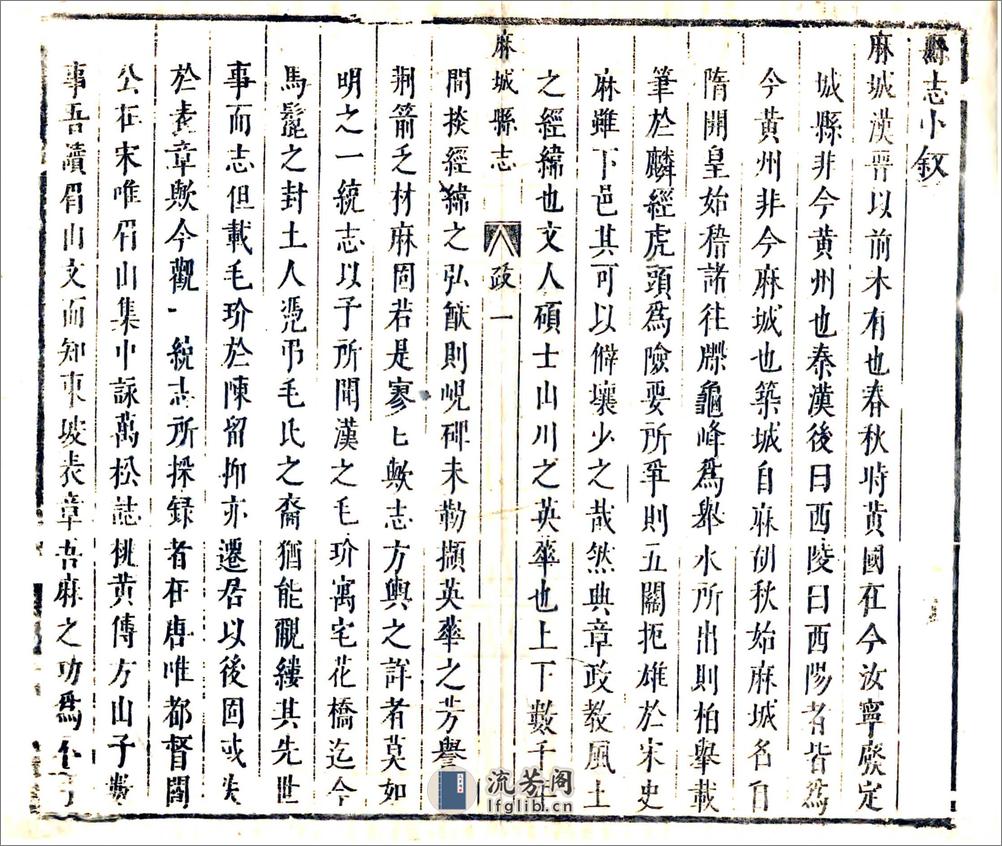 縣志小敘
麻城漢晉以前未有也春秋時黃國在今汝寧廢定
城縣非今黃州也秦漢後曰西陵曰西陽者皆爲
今黃州非今麻城也築城自麻秋始麻城名自
隋開皇始稽諸往牒龜峰爲舉水所出則柏舉載
筆於麟經虎頭爲險要所爭則五關扼雄於宋史
麻雖下邑其可以僻壤少之哉然典章政教風土
之經緯也文人碩士山川之英華也上下數千年
麻城縣志 政 一
間掞經緯之弘猷則峴碑未勒擷英華之芳譽
荆箭乏材麻固若是寥匕歟志方輿之詳者莫如
明之一統志以予所聞漢之毛玠寓宅花橋迄今
馬鬣之封土人憑弔毛氏之裔猶能覼縷其先世
事而志但載毛玠於陳留抑亦遷居以後固或失
於表章歟今觀一統志所採録者在唐唯都督閻
公在宋唯眉山集中詠萬松誌桃黃傳方山子數
事吾讀眉山文而知東坡表章吾麻之功爲不
流芳阁
lfglib.cn